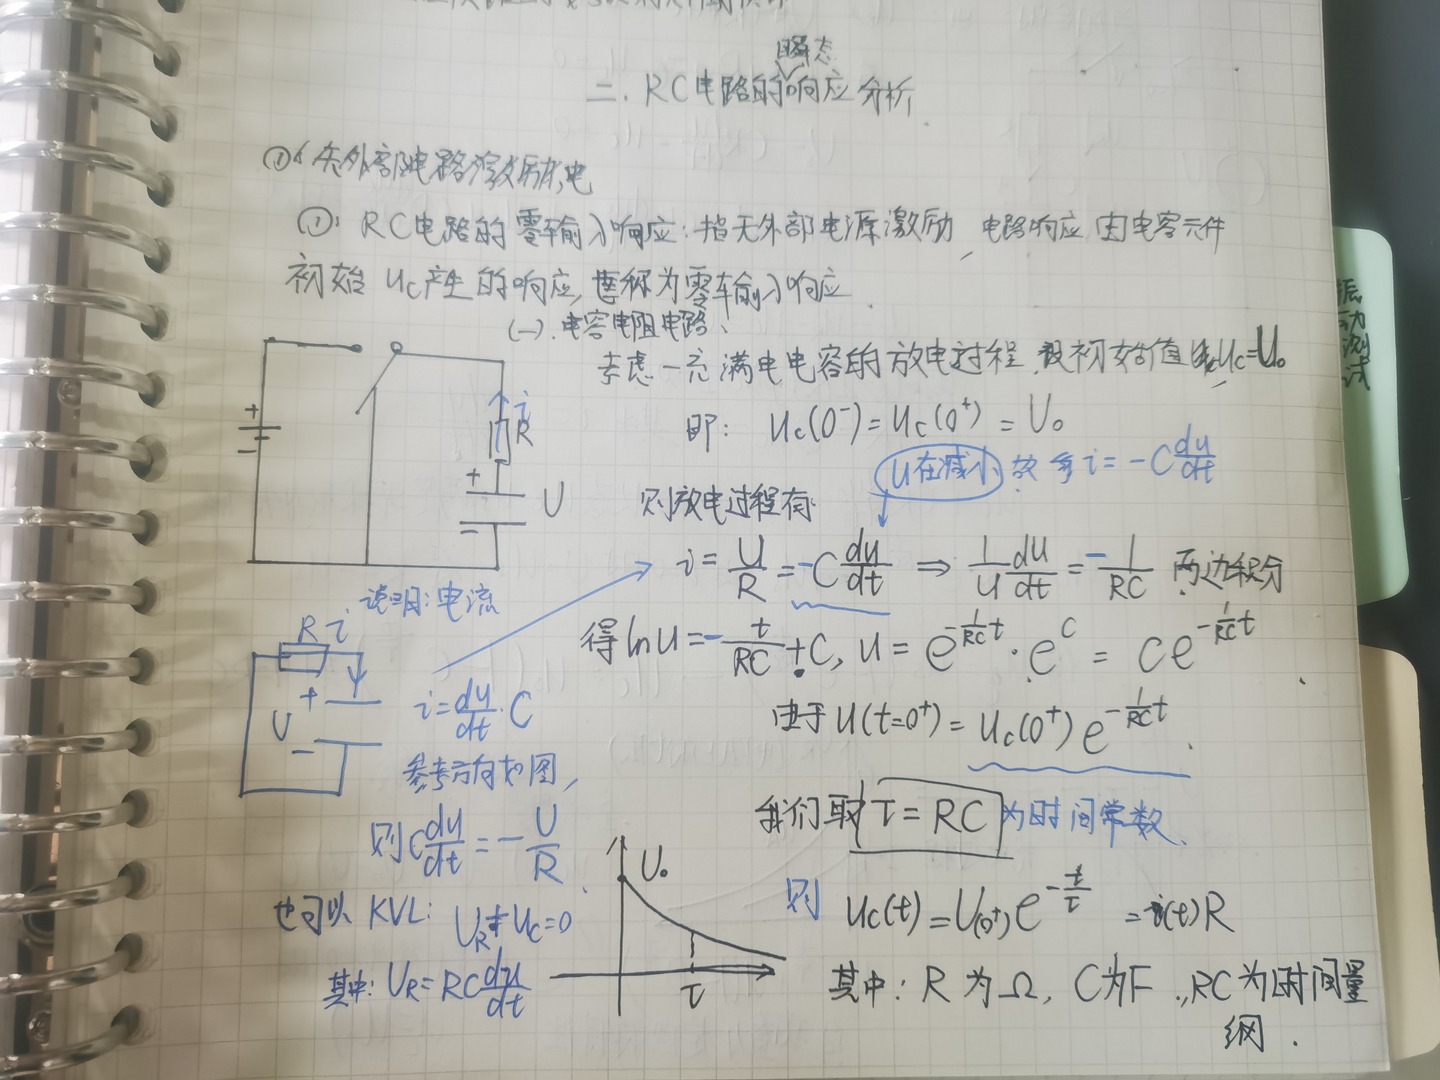 瞬态
二. RC电路的响应分析
外部电路激励
①: RC电路的零输入响应: 指无外部电源激励 电路响应由电容元件
初始 uc产生的响应, 称为零输入响应.
(一). 电容电阻电路.
考虑一充满电电容的放电过程, 设初始值 uc=U₀
即: uc(0⁻) = uc(0⁺) = U₀
u在减小 故 i = -C du/dt
则放电过程有
i = U/R = -C du/dt ⇒ 1/u du/dt = -1/RC 两边积分
得 ln u = -t/RC + C, u = e^(-1/RC t) · e^C = ce^(-1/RC t)
由于 u(t=0⁺) = uc(0⁺) e^(-1/RC t).
我们取 τ = RC 为时间常数.
则 uc(t) = U(0⁺) e^(-t/τ) = i(t)R
其中: R 为 Ω, C为F ., RC为时间量
纲.
+
-
i
R
+
-
U
说明: 电流
R i
+
U
-
i = du/dt · C
参考方向如图,
则 C du/dt = -U/R.
也可以 KVL: U_R + U_C = 0
其中: U_R = RC du/dt
U₀
τ
振动测试